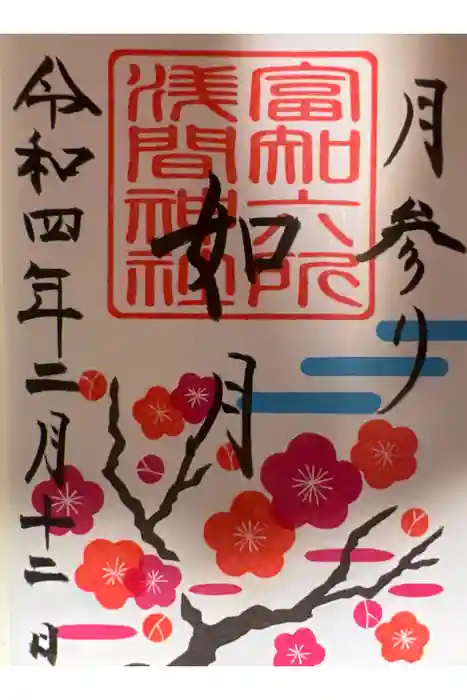 月参り
富知六所
浅間神社
如月
令和四年二月十二日